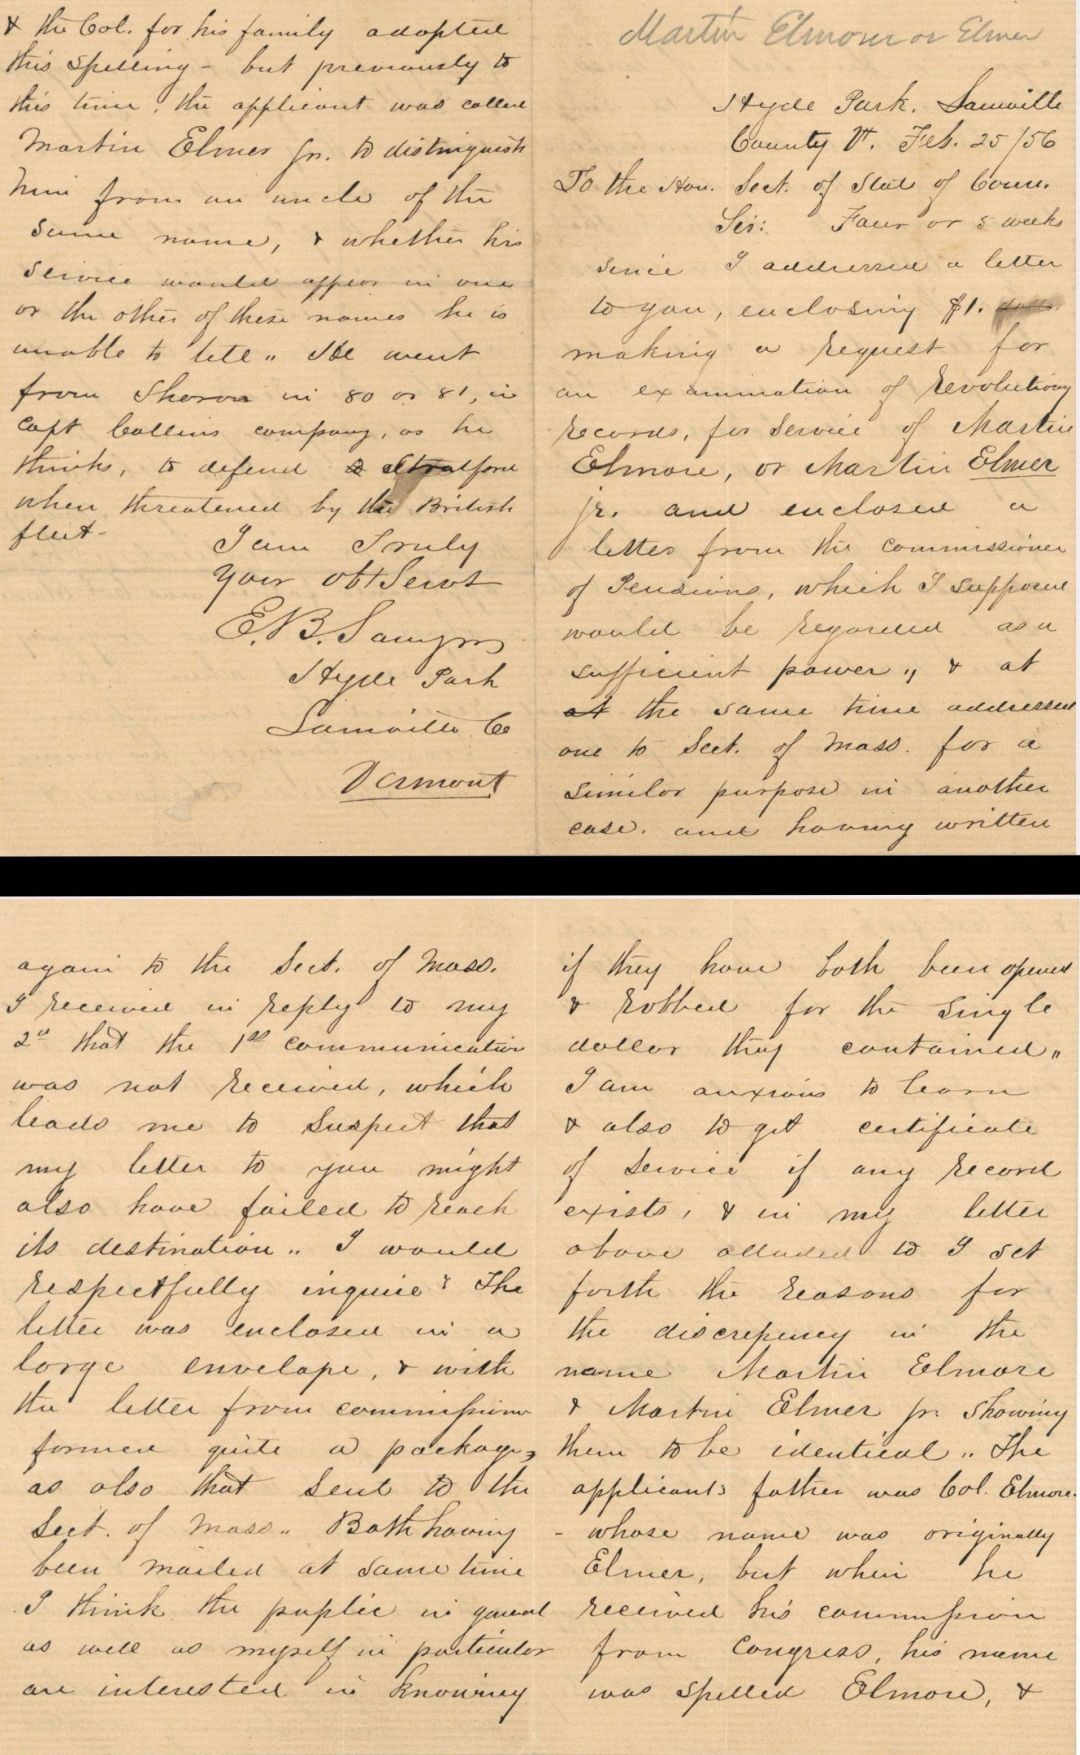 Martin Elmour or Elmer
Hyde Park. Lamoille
County Vt. Feb. 25/56
To the Hon. Sect. of Stat of Conn.
Sir: Four or 5 weeks
since I addressed a letter
to you, enclosing $1.
making a request for
an examination of Revolutionary
Records, for service of Martin
Elmore, or Martin Elmer
jr. and enclosed a
letter from the commissioner
of Pensions, which I supposed
would be regarded as a
sufficient power,, & at
at the same time addressed
one to Sect. of Mass. for a
similar purpose in another
case. and having written
again to the Sect. of Mass.
I received in reply to my
2d that the 1st communication
was not received, which
leads me to suspect that
my letter to you might
also have failed to reach
its destination,, I would
respectfully inquire? The
letter was enclosed in a
large envelope, & with
the letter from commissioner
formed quite a package,
as also that sent to the
Sect. of Mass,, Both having
been mailed at same time
I think the puplic in general
as well as myself in particular
are interested in knowing
if they have both been opened
& robbed for the single
dollar they contained,,
I am anxious to learn
& also to get certificate
of service if any record
exists, & in my letter
above alluded to I set
forth the reasons for
the discrepency in the
name Martin Elmore
& Martin Elmer jr. showing
them to be identical,, The
applicants father was Col. Elmore.
- whose name was originally
Elmer, but when he
received his commission
from Congress, his name
was spelled Elmore, &
& the Col. for his family adopted
this spelling - but previously to
this time, the applicant was called
Martin Elmer Jr. to distinguish
him from an uncle of the
same name, & whether his
service would appear in one
or the other of these names he is
unable to tell,, He went
from Sharon in 80 or 81, in
Capt Collins company, as he
thinks, to defend Stratford
when threatened by the British
fleet-
I am Truly
your obt Servt
E. B. Sawyer
Hyde Park
Lamoille Co
Vermont